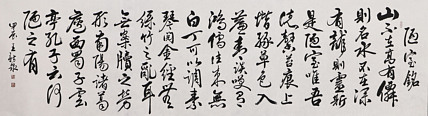 陋室銘
山不在高有僊
則名水不在深
有龍則靈斯
是陋室唯吾
德馨苔痕上
堦綠草色入
簾青談笑有
鴻儒往來無
白丁可以調素
琴閱金經無
絲竹之亂耳
無案牘之勞
形南陽諸葛
廬西蜀子雲
亭孔子云何
陋之有